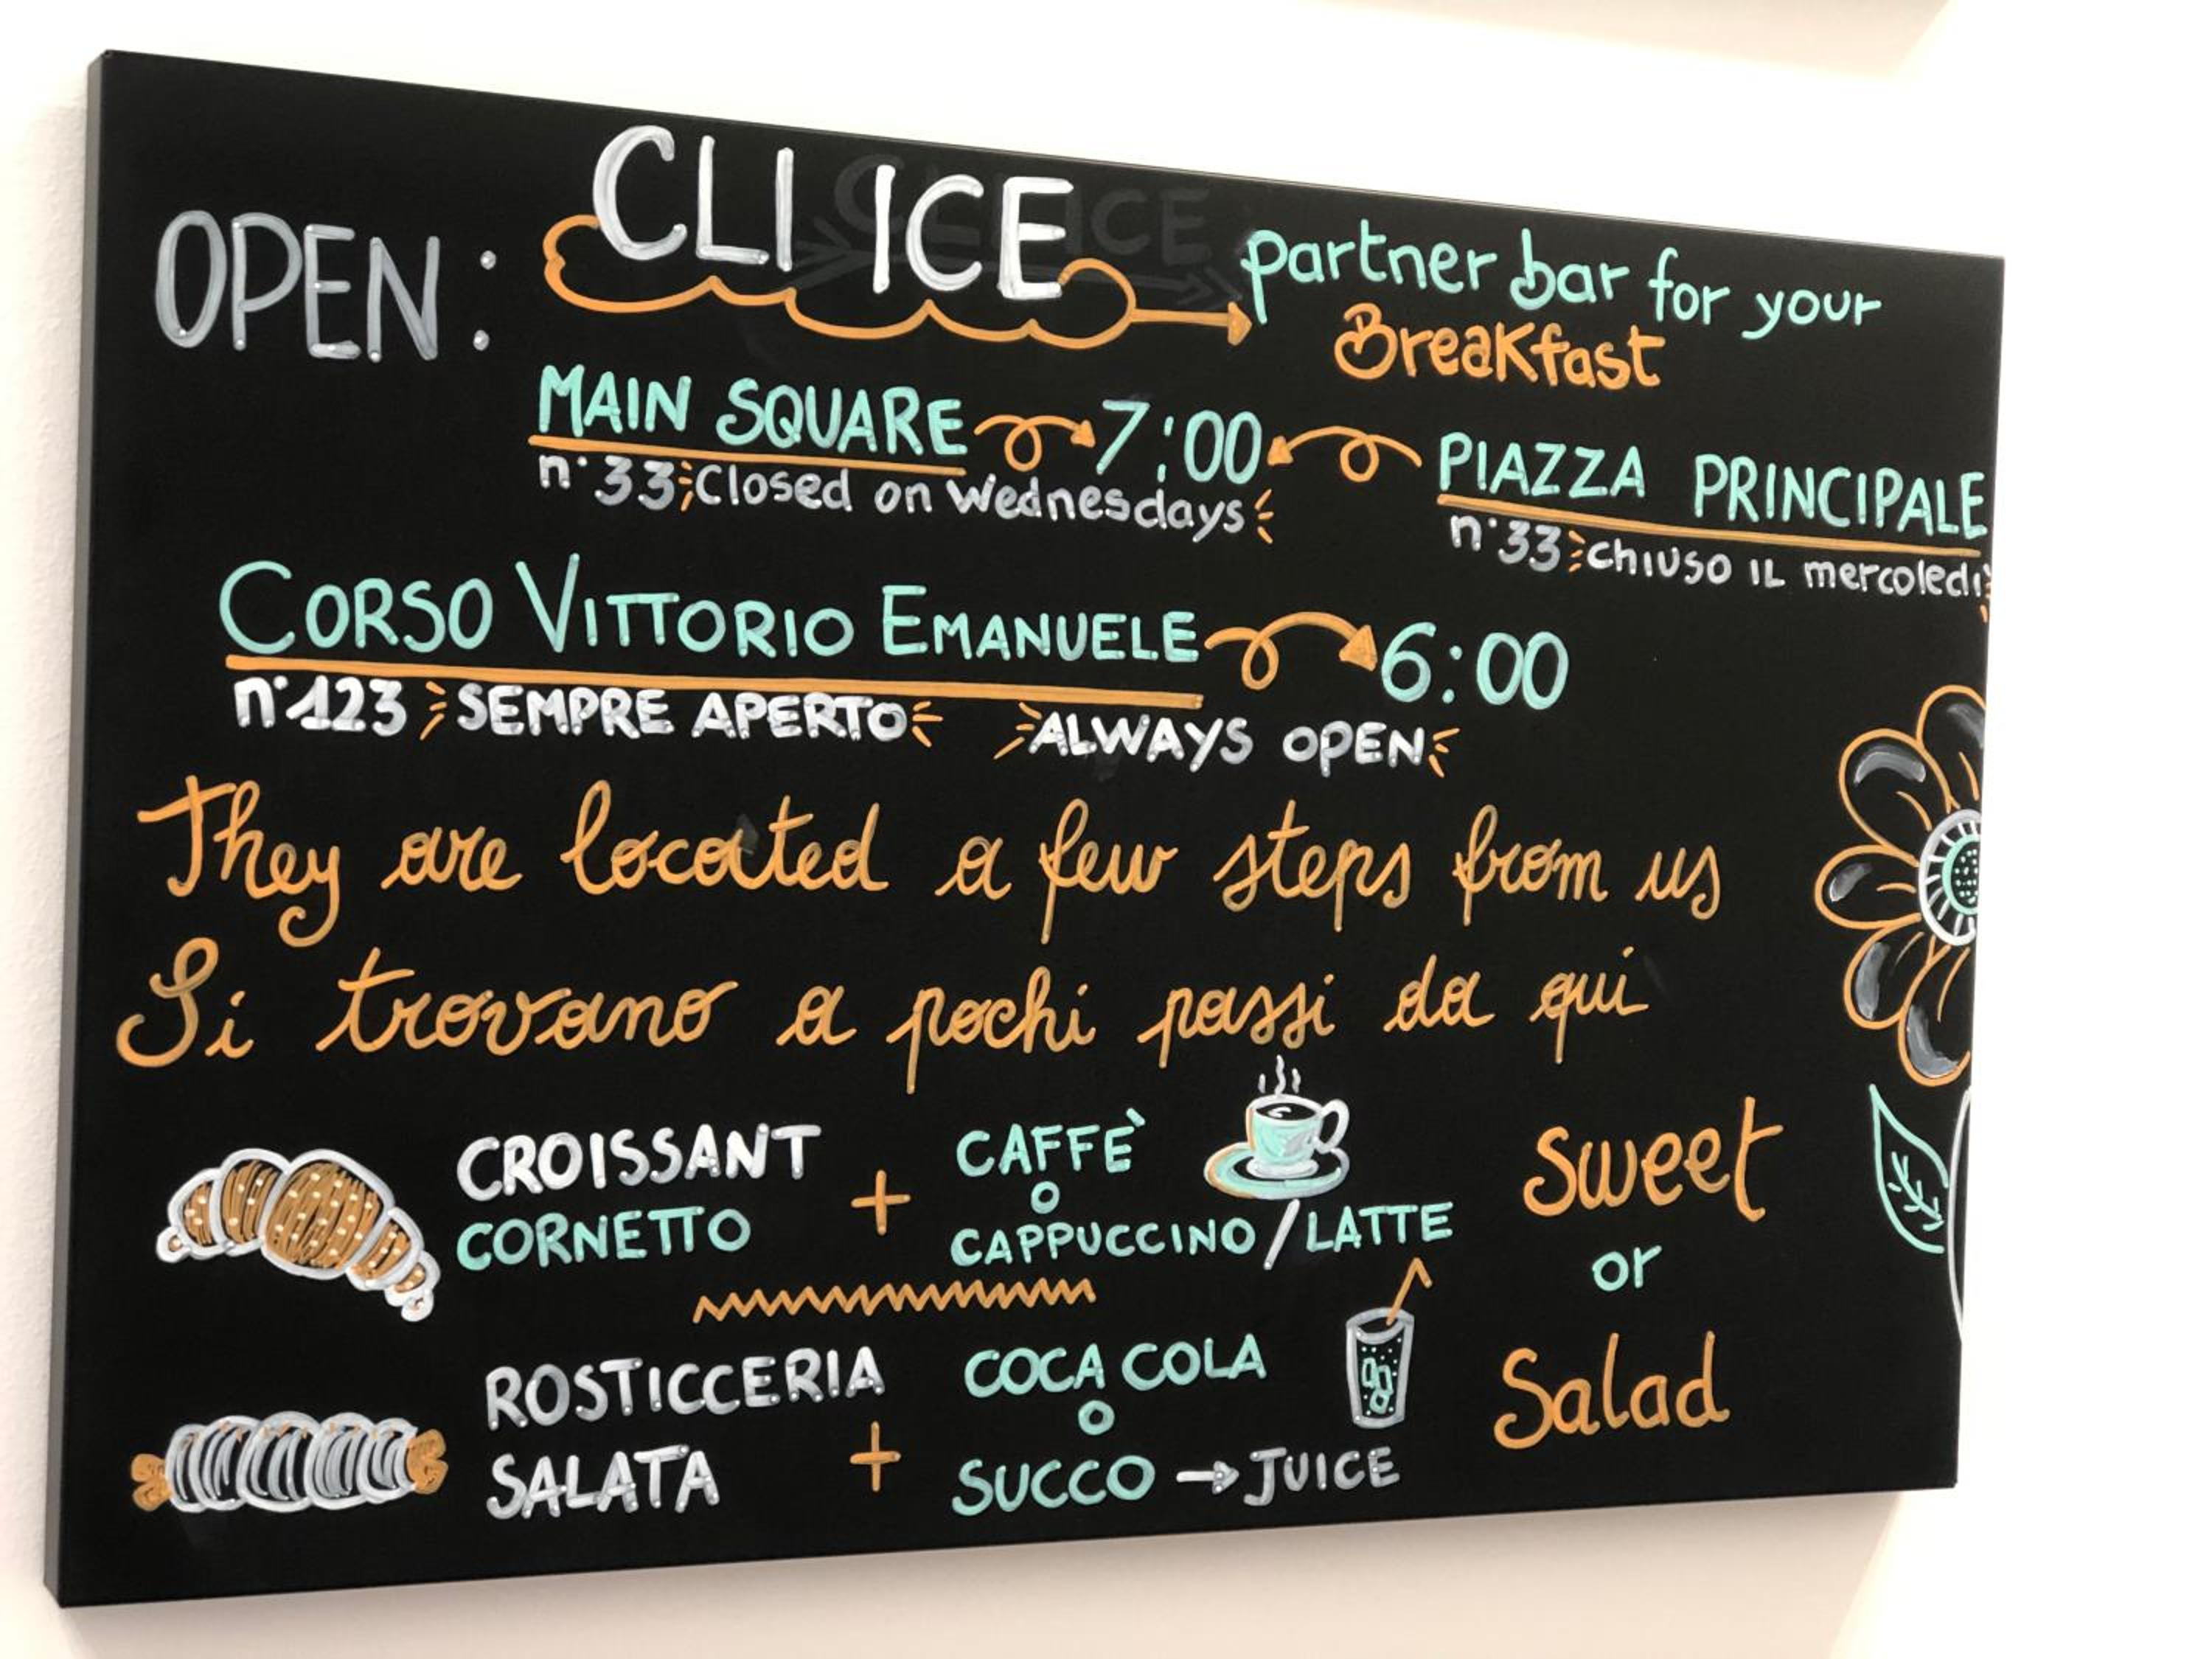 OPEN: CLI ICE partner bar for your
Breakfast
MAIN SQUARE 7:00 PIAZZA PRINCIPALE
n°33 Closed on Wednesdays n°33 chiuso il mercoledì
CORSO VITTORIO EMANUELE 6:00
n°123 SEMPRE APERTO ALWAYS OPEN
They are located a few steps from us
Si trovano a pochi passi da qui
CROISSANT + CAFFÈ
CORNETTO o
CAPPUCCINO / LATTE
sweet
or
Salad
ROSTICCERIA + COCA COLA
SALATA o
SUCCO → JUICE